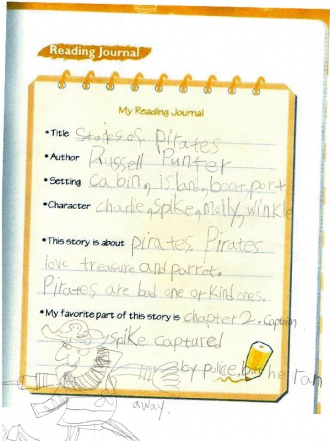 Reading Journal
My Reading Journal
• Title Stories of Pirates
• Author Russell Punter
• Setting cabin, island, boat, port
• Character charlie, spike, Molly, winkle
• This story is about pirates. Pirates
love treasure and parrot.
Pirates are bad one or kind ones.
• My favorite part of this story is chapter 2. Captain
Spike captured
by police, but he ran
away.